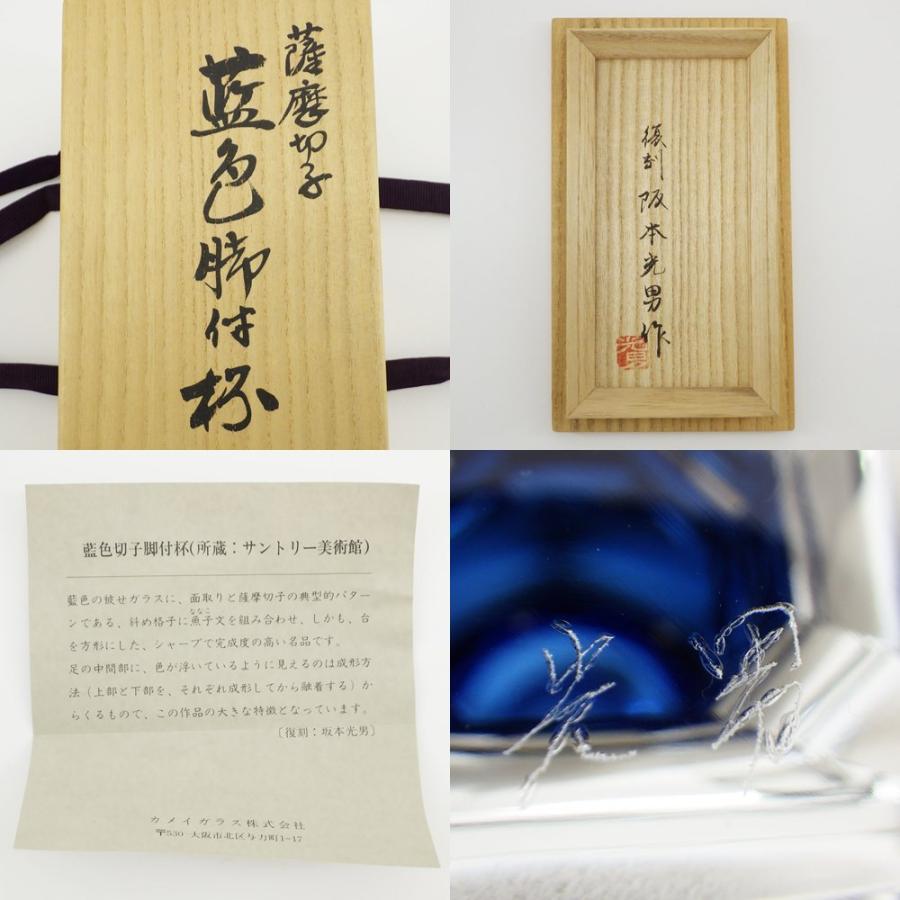 薩摩切子
藍色脚付杯
復刻 阪本光男作
光男
藍色切子脚付杯(所蔵：サントリー美術館)
藍色の被せガラスに、面取りと薩摩切子の典型的パター
ンである、斜め格子に魚子文を組み合わせ、しかも、台
ななこ
を方形にした、シャープで完成度の高い名品です。
足の中間部に、色が浮いているように見えるのは成形方
法（上部と下部を、それぞれ成形してから融着する）か
らくるもので、この作品の大きな特徴となっています。
〔復刻：坂本光男〕
カメイガラス株式会社
〒530 大阪市北区与力町1-17
光男